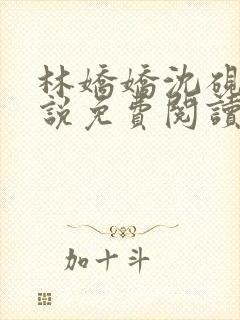 林嬌嬌沈硯
說免費閱讀
加十斗